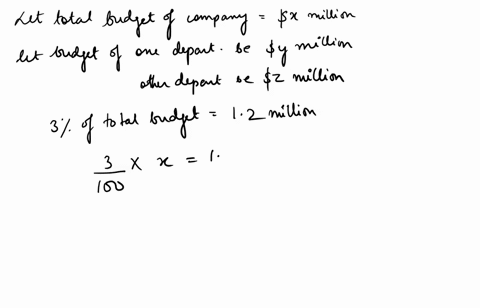 Let total budget of company = $x million
let budget of one depart. be $y million
other depart be $z million
3% of total budget = 1.2 million
3/100 × x = 1.